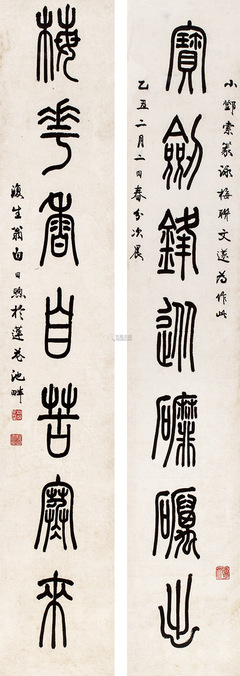 小鄧索篆詠梅聯文遂為作此
寶劍鋒從磨礪出
乙丑二月二日春分次晨
梅花香自苦寒來
生翁白日煦於蓮花池畔